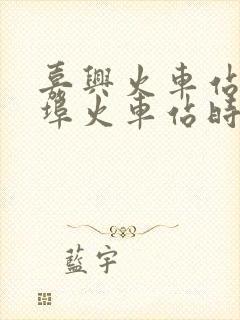 嘉興火車佔
埠火車佔時
藍宇